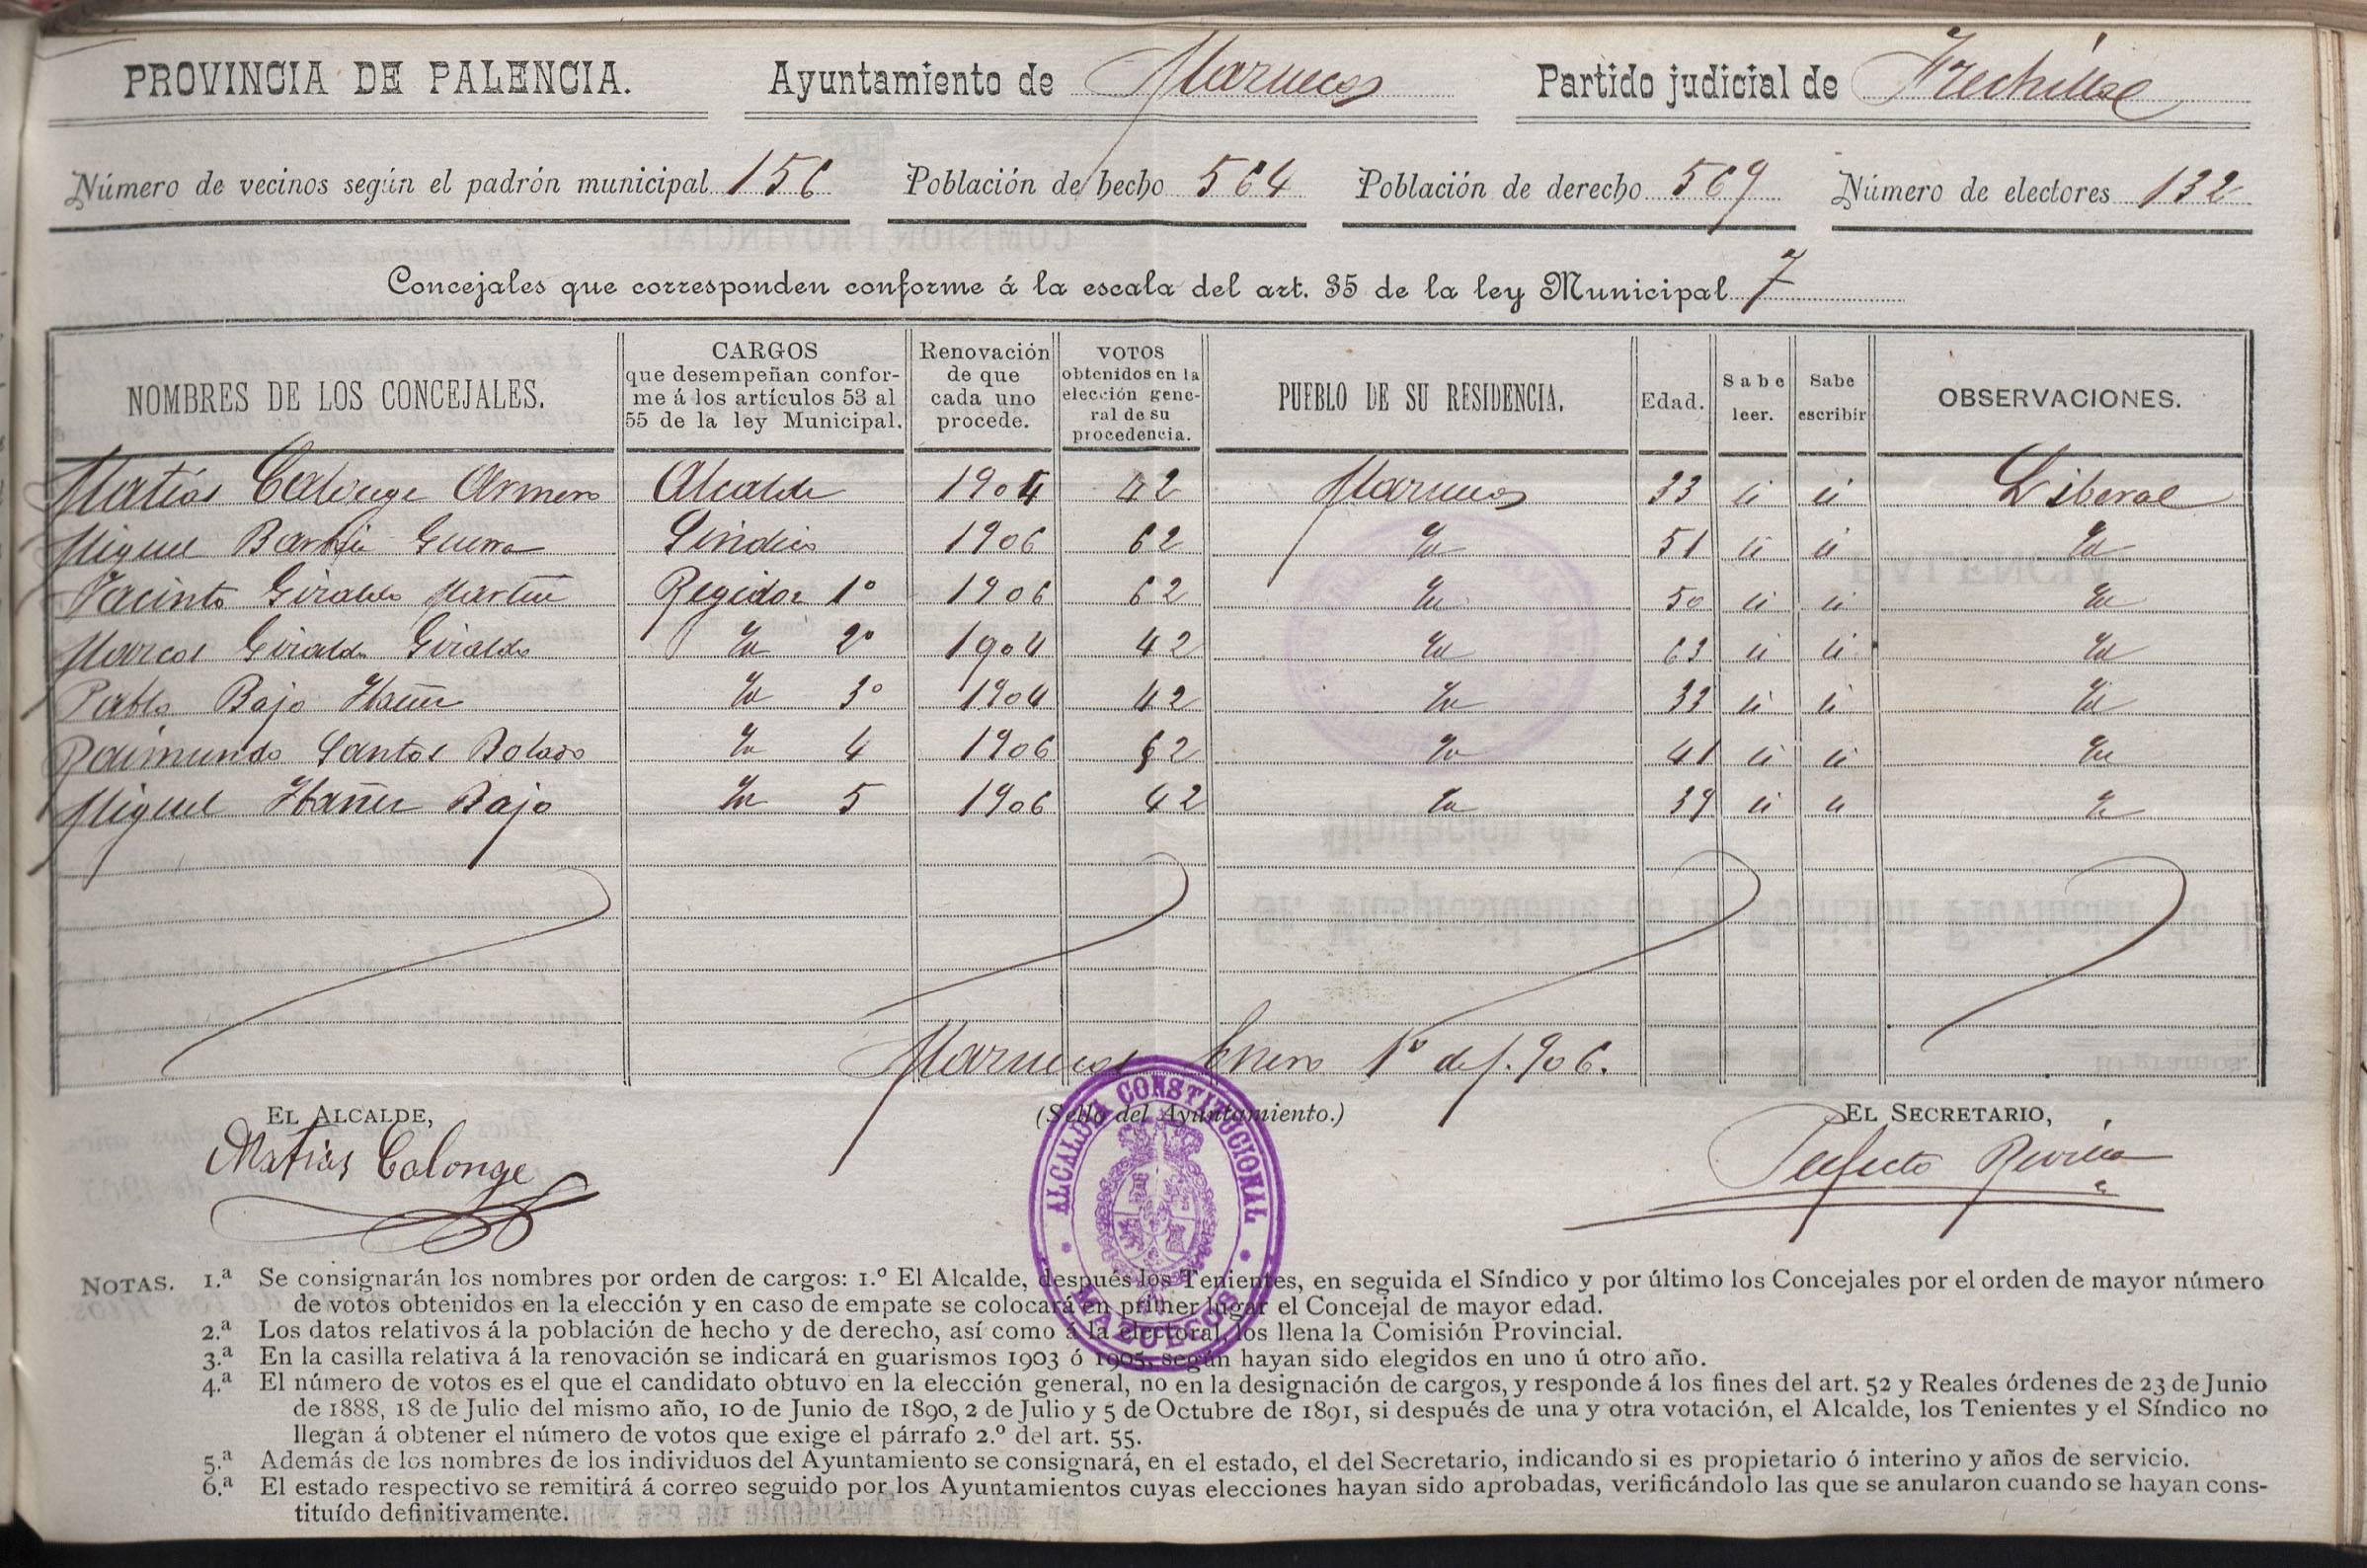 PROVINCIA DE PALENCIA. Ayuntamiento de Mazuecos Partido judicial de Frechilla
Número de vecinos según el padrón municipal 156 Población de hecho 564 Población de derecho 569 Número de electores 132
Concejales que corresponden conforme á la escala del art. 35 de la ley Municipal 7
NOMBRES DE LOS CONCEJALES. CARGOS que desempeñan confor- me á los artículos 53 al 55 de la ley Municipal. Renovación de que cada uno procede. VOTOS obtenidos en la elección gene- ral de su procedencia. PUEBLO DE SU RESIDENCIA. Edad. Sabe leer. Sabe escribir OBSERVACIONES.
Matías Calonge Armero Alcalde 1904 42 Mazuecos 33 si si Liberal
Miguel Guerra Síndico 1906 62 Id 51 si si Id
Jacinto Giraldo Martín Regidor 1º 1906 62 Id 50 si si Id
Marcos Giraldo Giraldo Id 2º 1904 42 Id 63 si si Id
Pablo Bajo Ibañez Id 3º 1904 42 Id 33 si si Id
Raimundo Santos Bolado Id 4 1906 52 Id 41 si si Id
Miguel Ibañez Bajo Id 5 1906 42 Id 39 si si Id
Mazuecos Enero 1º de 1.906.
EL ALCALDE, (Sello del Ayuntamiento.) EL SECRETARIO,
Matias Calonge Perfecto Revilla
ALCALDIA CONSTITUCIONAL
MAZUECOS
NOTAS. 1.ª Se consignarán los nombres por orden de cargos: 1.º El Alcalde, después los Tenientes, en seguida el Síndico y por último los Concejales por el orden de mayor número
de votos obtenidos en la elección y en caso de empate se colocará en primer lugar el Concejal de mayor edad.
2.ª Los datos relativos á la población de hecho y de derecho, así como á la electoral, los llena la Comisión Provincial.
3.ª En la casilla relativa á la renovación se indicará en guarismos 1903 ó 1905, según hayan sido elegidos en uno ú otro año.
4.ª El número de votos es el que el candidato obtuvo en la elección general, no en la designación de cargos, y responde á los fines del art. 52 y Reales órdenes de 23 de Junio
de 1888, 18 de Julio del mismo año, 10 de Junio de 1890, 2 de Julio y 5 de Octubre de 1891, si después de una y otra votación, el Alcalde, los Tenientes y el Síndico no
llegan á obtener el número de votos que exige el párrafo 2.º del art. 55.
5.ª Además de los nombres de los individuos del Ayuntamiento se consignará, en el estado, el del Secretario, indicando si es propietario ó interino y años de servicio.
6.ª El estado respectivo se remitirá á correo seguido por los Ayuntamientos cuyas elecciones hayan sido aprobadas, verificándolo las que se anularon cuando se hayan cons-
tituído definitivamente.